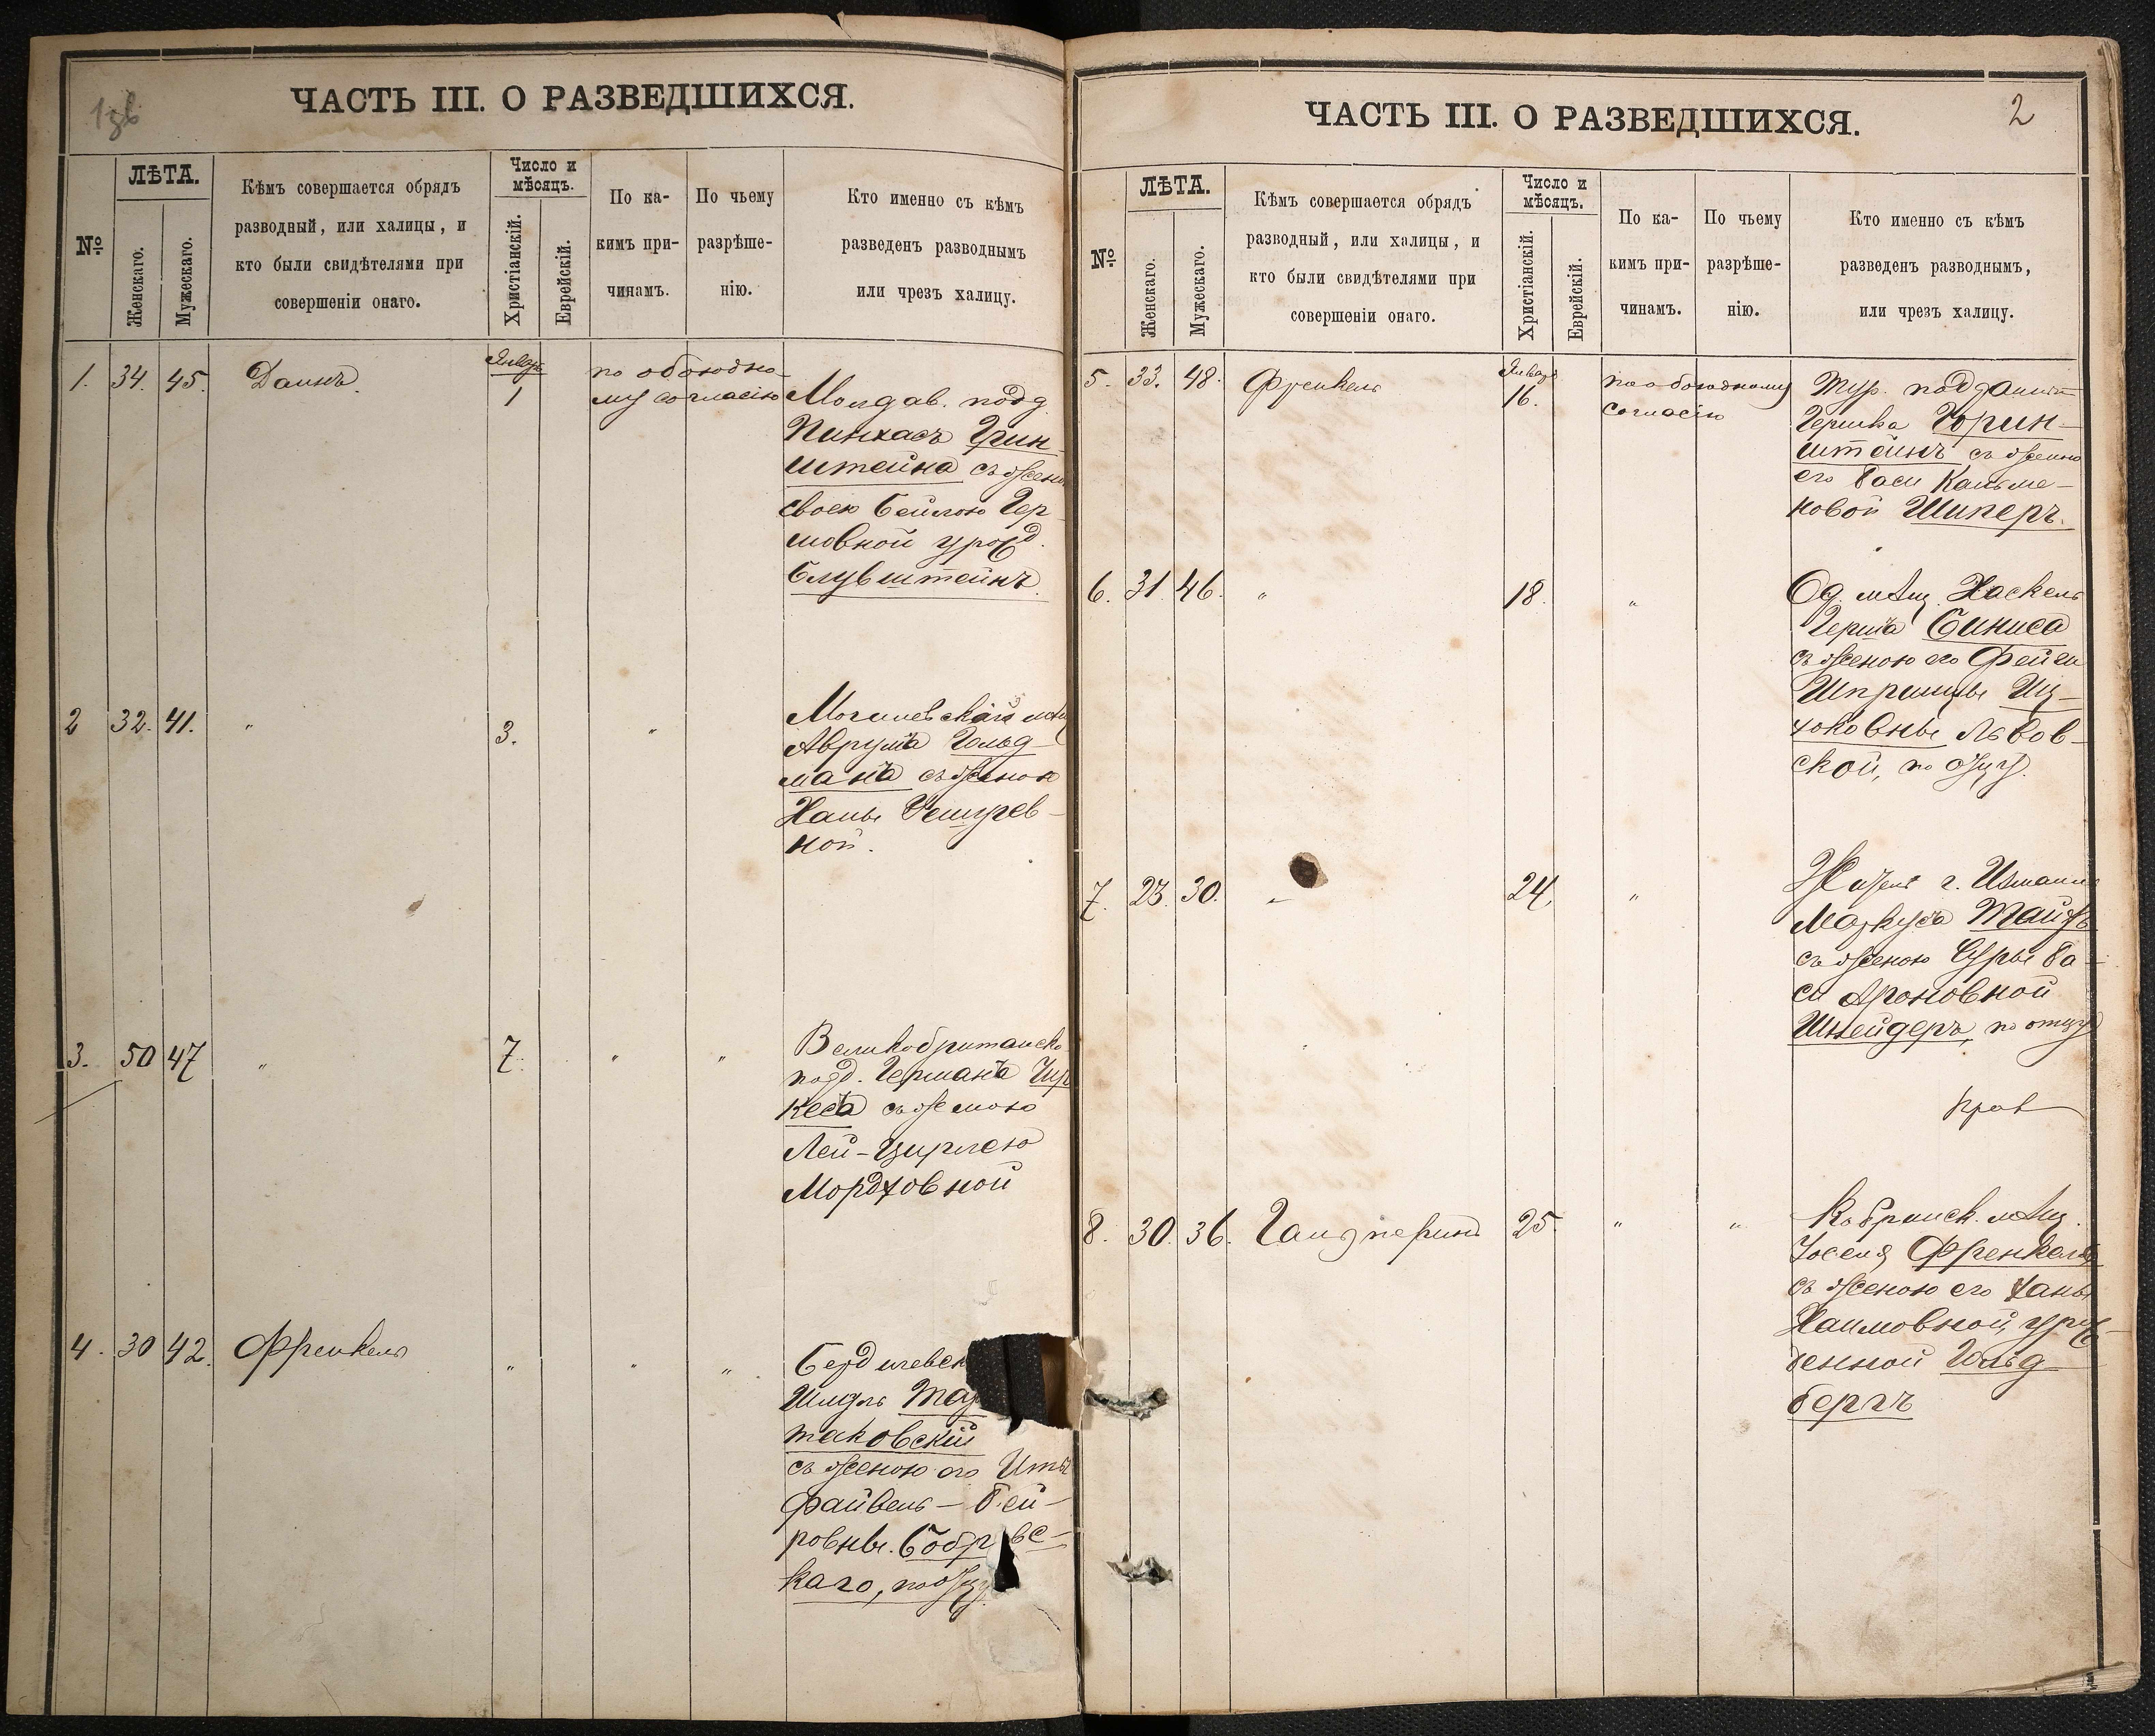 1зв
ЧАСТЬ III. О РАЗВЕДШИХСЯ.
№
ЛѢТА.
Женскаго.
Мужескаго.
Кѣмъ совершается обрядъ
разводный, или халицы, и
кто были свидѣтелями при
совершеніи онаго.
Число и
мѣсяцъ.
Христіанскій.
Еврейскій.
По ка-
кимъ при-
чинамъ.
По чьему
разрѣше-
нію.
Кто именно съ кѣмъ
разведенъ разводнымъ
или чрезъ халицу.
1. 34. 45. Январь 1 по обоюдно-
му согласію Молдав. подд.
Пинхасъ Грин
штейна съ жено
своею Бейлою Гер
шовной урожд.
Блувштейнъ.
2 32. 41. " 3. " Могилевскій мѣщ
Аврума Гольд-
мана съ женою
Ханы
ной.
3. 50 47 " 7. " " Великобританско
подд. Германа
кеса съ женою
Лей-Цирлею
Мордховной
4. 30 42. Френкель " " " Бердичевск
таковскій
съ женою его Иты
Файвель-Бей-
ровны. Бобр вс-
каго, по отцу
ЧАСТЬ III. О РАЗВЕДШИХСЯ.
2
№
ЛѢТА.
Женскаго.
Мужескаго.
Кѣмъ совершается обрядъ
разводный, или халицы, и
кто были свидѣтелями при
совершеніи онаго.
Число и
мѣсяцъ.
Христіанскій.
Еврейскій.
По ка-
кимъ при-
чинамъ.
По чьему
разрѣше-
нію.
Кто именно съ кѣмъ
разведенъ разводнымъ,
или чрезъ халицу.
5. 33. 48. Френкель Январь 16. по обоюдному
согласію Тур. подданный
Гершка Горин-
штейнъ съ женою
его Баси Кальме-
новой Шиперъ.
6. 31 46. " 18. " Од. мѣщ. Хаскель
Герша Биниса
съ женою его Фейги
Шпринцы Иц-
чоковны Львов-
ской, по отцу.
7. 23. 30. " 24. " Жител г. Измаил
Маркуса
съ женою Суры Ба-
си Ароновной
Шнейдеръ, по отцу
8. 30. 36. Гальперинъ 25. " " Кобринск. мѣщ.
Іоселя Френкеля
съ женою его Ханы
Хаимовной, урож-
денной Гольд-
бергъ